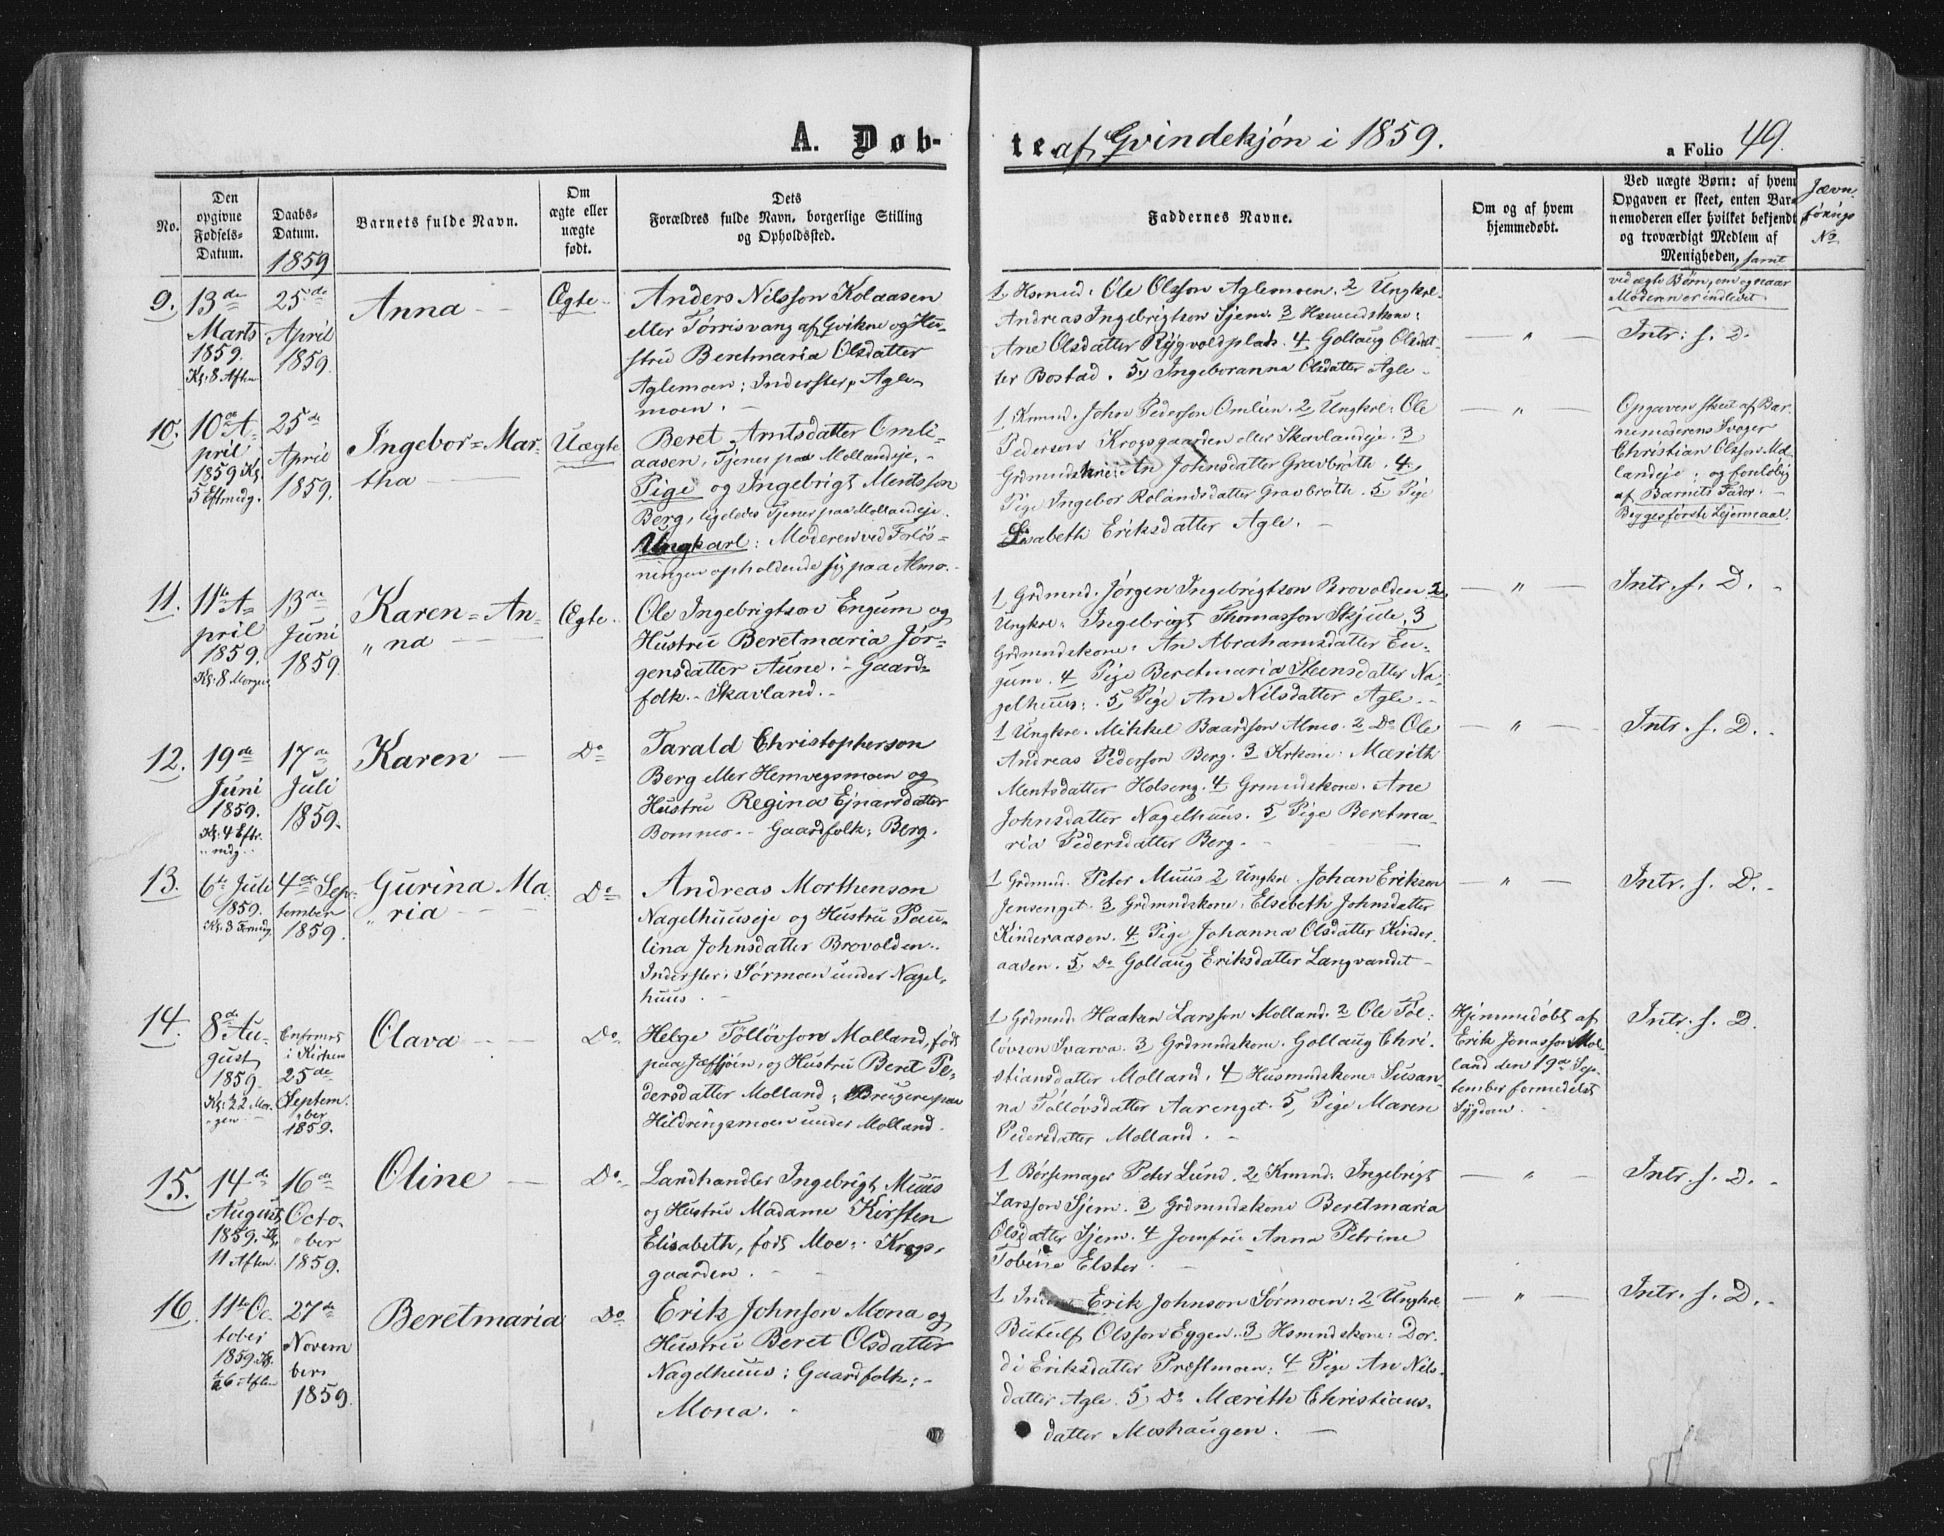 A. Døb-
te af Qvindekjøn i 1859.
a Folio 49.
No.
Den opgivne Fødsels-Datum.
Daabs-Datum.
1859
Barnets fulde Navn.
Om ægte eller uægte født.
Dets
Forældres fulde Navn, borgerlige Stilling
og Opholdssted.
Faddernes Navne.
Om og af hvem
hjemmedøbt.
Ved uægte Børn: af hvem
Opgaven er skeet, enten Bar-
nemoderen eller hvilket bekjendt
og troværdigt Medlem af
Menigheden, samt
ved ægte Børn, om og naar
Moderen er indledet
Jævn-
førings
No.
9.
13de
Marts
1859.
Kl: 8 Aften
25de
April
1859.
Anna
Ægte
Anders Nilsson Kolaasen
eller Tørrisvang af Qvikne og Hu-
stru Beretmaria Olsdatter
Aglemoen; Inderster, Agle-
moen.
1 Hsmnd: Ole Olsson Aglemoen. 2 Ungkrl.
Andreas Ingebrigtson Sjem. 3 Hsmndskone:
Ane Olsdatter Rygvoldplads. 4 Gollaug Olsdat-
ter Bostad. 5, Ingeboranna Olsdatter Agle
— " —
Intr: f. D.
10.
10de A-
pril
1859 Kl.
5 Eftmidg.
25de
April
1859.
Ingebor=Mar-
tha
Uægte
Beret Arntsdatter Omli-
aasen, Tjener paa Mollandeje,
Pige og Ingebrigt Mentsson
Berg, ligeledes Tjener paa Mollandeje.
Ungkarl: Moderen ved Forløs-
ningen opholdende sig paa Almo.
1 Kmnd. John Pederson Omlien. 2 Ungkrl: Ole
Pederson Krogsgaarden eller Skavlandeje. 3
Grdmndskne: An Johnsdatter Gravbrøth. 4
Pige Ingebor Rolandsdatter Gravbrøth. 5 Pige
Lisabeth Eriksdatter Agle.
— " —
Opgaven skeet af Bar-
nemoderens Svoger
Christian Olsson Mo-
landeje; og foreløbig
af Barnets Fader.
Begges første Lejermaal.
11.
11te A-
pril
1859.
Kl: 8 Morgen
13de
Juni
1859.
Karen=An-
"na
Ægte
Ole Ingebrigtson Engum og
Hustru Beretmaria Jør-
gensdatter Aune. Gaard-
folk. Skavland.
1 Grdmnd. Jørgen Ingebrigtson Brovolden 2,
Ungkrl: Ingebrigt Thomasson Skjule, 3
Grdmndskone: An Abrahamsdatter En-
gum. 4 Pige Beretmaria Steensdatter Na-
gelhuus: 5, Pige An Nilsdatter Agle
— " —
Intr. f. D.
12.
19de
Juni
1859.
Kl: 4 Eftr.
midg.
17de
Juli
1859.
Karen
Do
Tarald Christopherson
Berg eller Hemvegsmoen og
Hustru Regina Ejnarsdatter
Bommo. Gaardfolk; Berg.
1 Ungkrl. Mikkel Baardson Almo. 2 Do Ole
Andreas Pederson Berg. 3 Krkone: Mærith
Mentsdatter Holseng. 4 Grmndskone. Ane
Johnsdatter Nagelhuus. 5 Pige Beretma-
ria Pedersdatter Berg.
— " —
Intr. f. D.
13.
6te Juli
1859.
Kl: 3 Formdg
4de Sep-
tember
1859.
Gurina Ma-
"ria
Do
Andreas Morthenson
Nagelhuuseje og Hustru Pau-
lina Johnsdatter Brovolden.
Inderster; Sørmoen under Nagel-
huus.
1 Grdmnd. Peter Muus 2 Ungkrl. Johan Erikson
Jensenget. 3 Grdmndskone; Elsebeth Johnsdatter
Kinderaasen. 4 Pige Johanna Olsdatter Kinder-
aasen. 5, Do Gollaug Eriksdatter Langvandet
— " —
Intr. f. D.
14.
8de Au-
gust
1859.
Kl: 22 Mor-
gen
Confirmert
i Kirken
25de
Septem-
ber
1859.
Olava
Do
Helge Tølløvson Molland, født
paa , og Hustru Beret Pe-
dersdatter Molland; Brugere paa
Hildringsmoen under Molland.
1 Grdmnd. Haakan Larsson Molland. 2 Ole Tøl-
løvson Svarva. 3 Grdmndskone. Gollaug Chri-
stiansdatter Molland. 4 Husmndskone: Susan-
na Tølløvsdatter Aarenget. 5, Pige Maren
Pedersdatter Molland.
Hjemmedøbt af
Erik Jonasson Mol-
land den 19de Sep-
tember formedelst
Sygdom
Intr. f. D.
15.
14de
August
1859. Kl.
11 Aften.
16de
Octo-
"ber
1859.
Oline
Do
Landhandler Ingebrigt Muus
og Hustru Madame Kirsten
Elisabeth, født Moe: Krogs-
gaarden.
1 Børsemager Peter Lund. 2, Kmnd: Ingebrigt
Larsson Sjem. 3 Grdmndskone Beretmaria
Olsdatter Sjem. 4 Jomfru Anna Petrine
Tobine Elster.
— " —
Intr. f. D.
16
11te Oc-
tober
1859. Kl.
½6 Aften
27de
Novem
ber
1859.
Beretmaria
Do
Erik Johnson Mona og
Hustru Beret Olsdatter
Nagelhuus; Gaardfolk:
Mona.
1 Erik Johnson Sørmoen: 2 Ungkrl.
Butulf Olsson Eggen. 3 Hsmndskone: Dor-
di Eriksdatter Præstmoen: 4 Pige An Nils-
datter Agle. 5, Do Mærith Christians-
datter Moshaugen.
— " —
Intr. f. D.